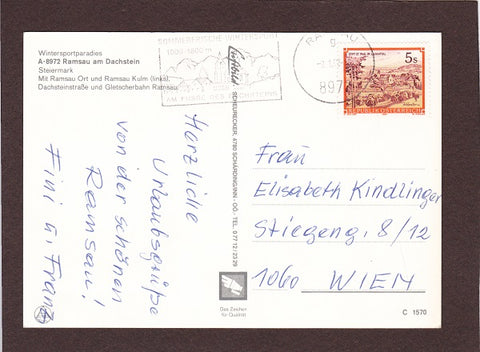 Wintersportparadies
A-8972 Ramsau am Dachstein
Steiermark
Mit Ramsau Ort und Ramsau Kulm (links),
Dachsteinstraße und Gletscherbahn Ramsau
SOMMERFRISCHE WINTERSPORT
1000-1800 m
AM FUSSE DES DACHSTEINS
Luftbild
897
5s
REPUBLIK ÖSTERREICH
Herzliche
Urlaubsgrüße
von der schönen
Ramsau!
Fini u. Franz
Frau
Elisabeth Kindlinger
Stiegeng. 8/12
1060 WIEN
Das Zeichen
für Qualität
C 1570